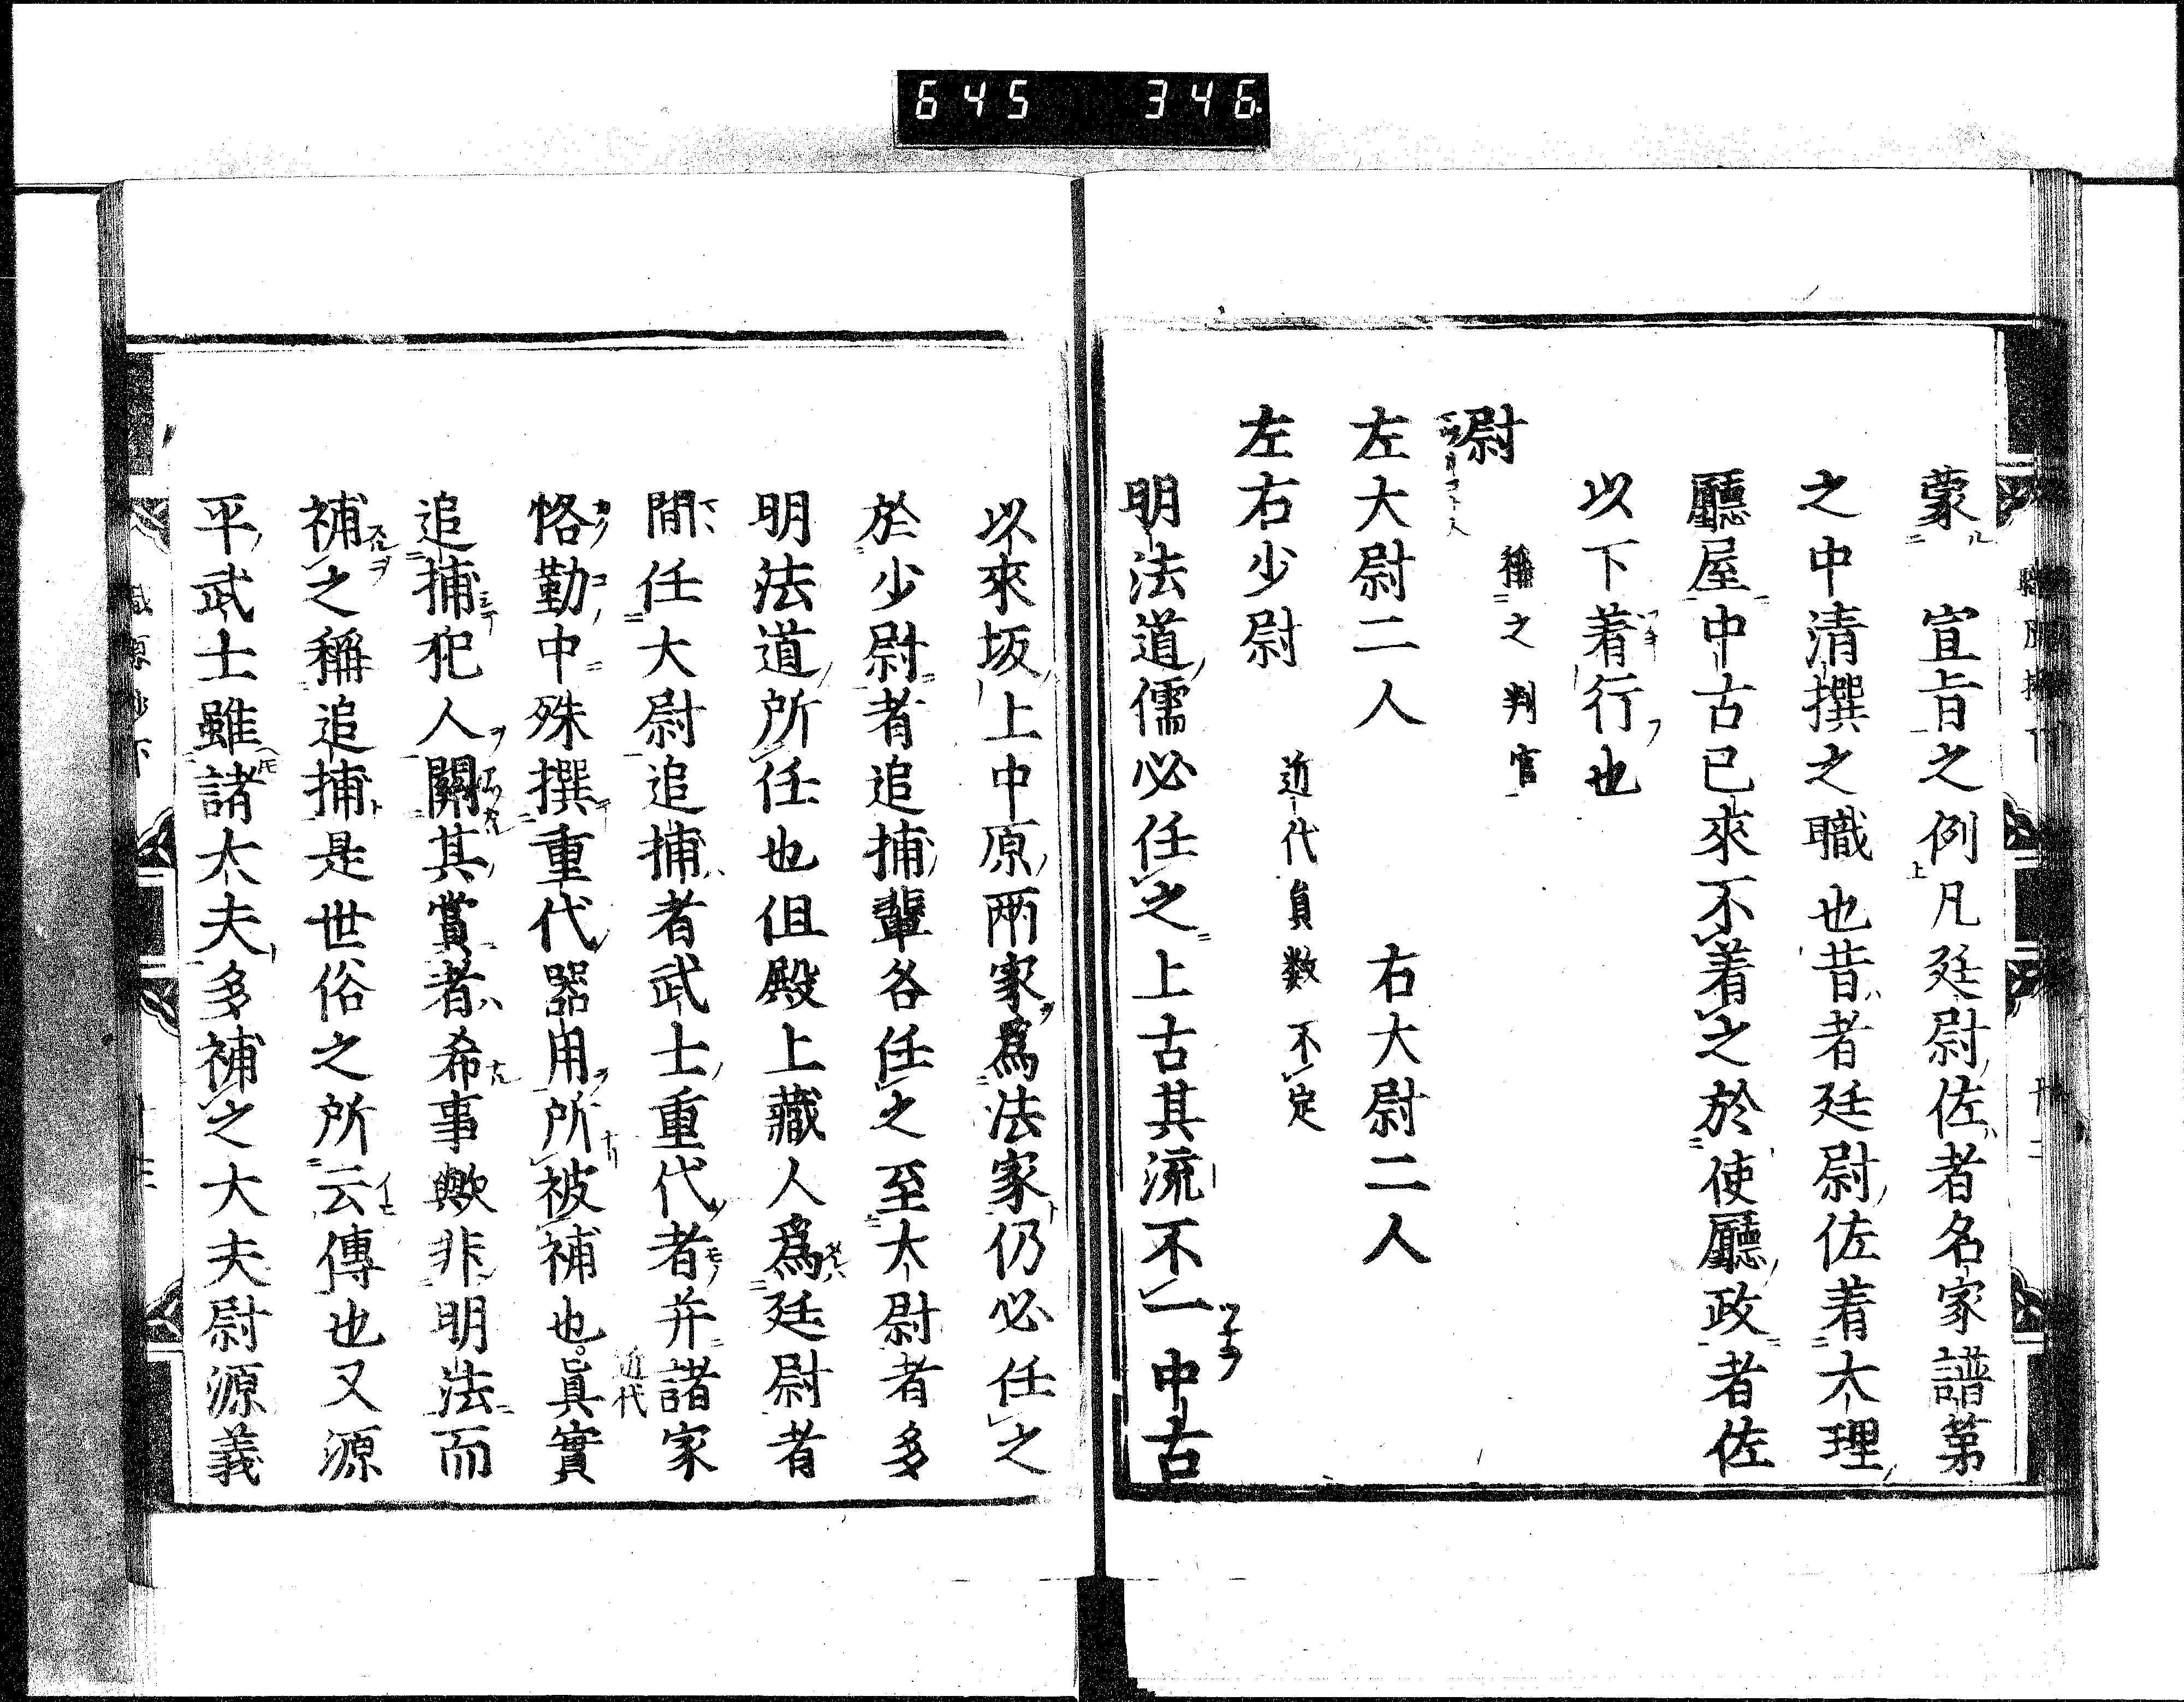 645 346.
蒙 宣旨之例凡廷尉佐者名家譜第
之中清撰之職也昔者廷尉佐着大理
廳屋中古已來不着之於使廳政者佐
以下着行也
尉 稱之判官
左大尉二人 右大尉二人
左右少尉 近代員数不定
明法道儒必任之上古其流不一中古
以來坂上中原两家爲法家仍必任之
於少尉者追捕輩各任之至大尉者多
明法道所任也但殿上藏人爲廷尉者
間任大尉追捕者武士重代者并諸家
恪勤中殊撰重代器用所被補也眞實
近代
追捕犯人關其賞者希事歟非明法而
補之稱追捕是世俗之所云傳也又源
平武士雖諸大夫多補之大夫尉源義